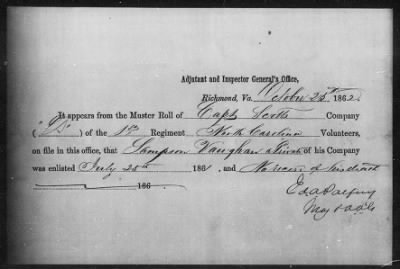 Adjutant and Inspector General's Office,
Richmond, Va. October 25th 1862.
It appears from the Muster Roll of Capt Scotts Company
("D") of the Regiment North Carolina Volunteers,
on file in this office, that Thompson Vaughan a Private of his Company
was enlisted July 25th 186 , and No record of
186
May & AAG